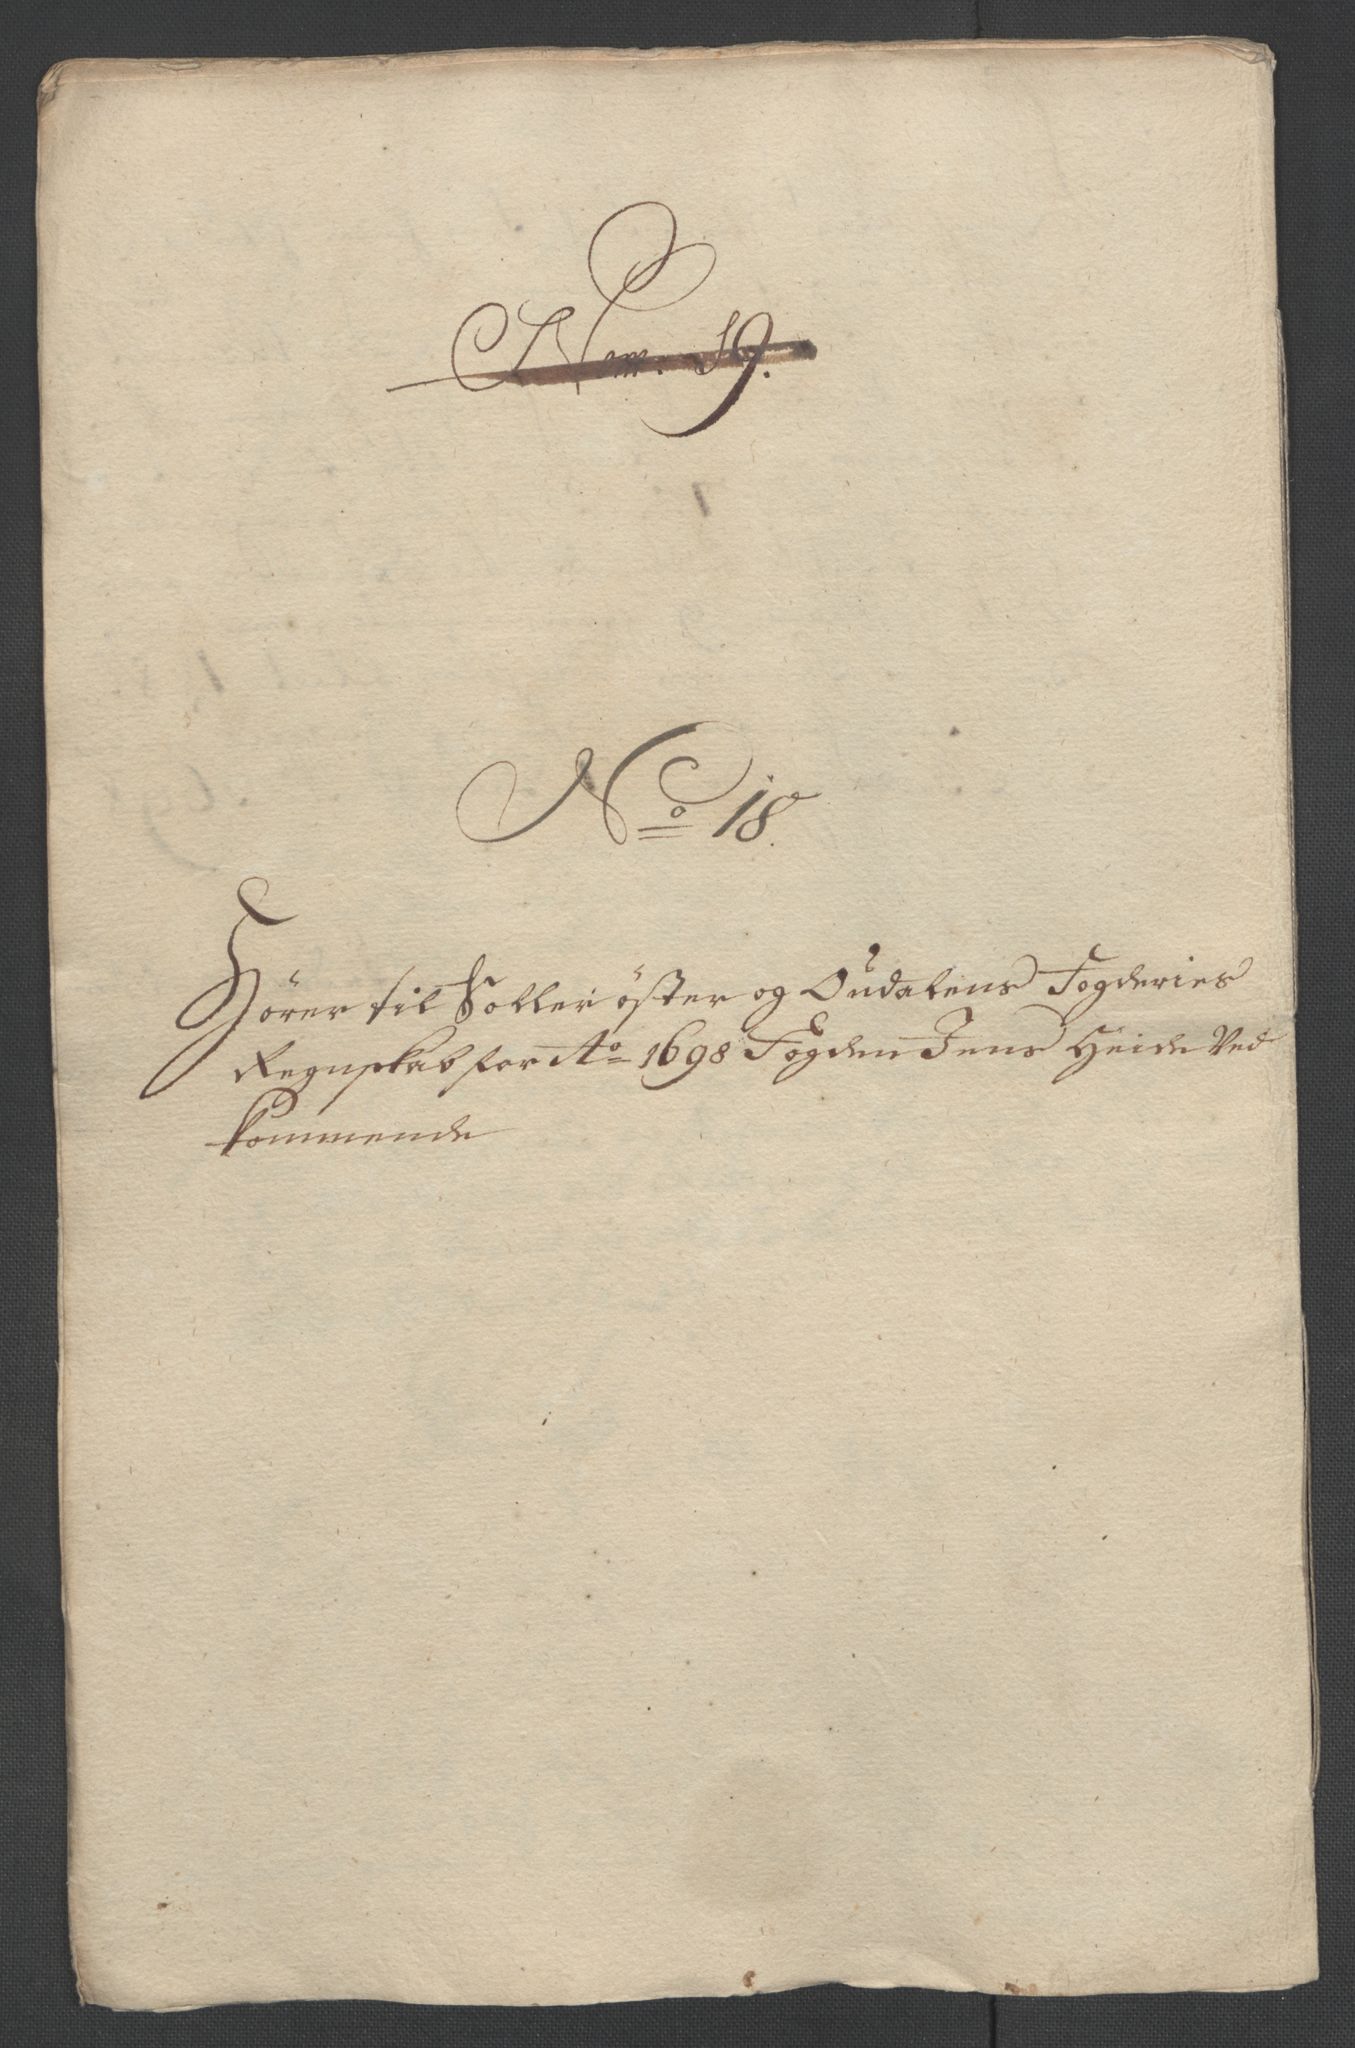 Num. 19.
No 18.
Hører til Soller öster og Oudalens Fogderies
Regnskab for Ao 1698 Fogden Jens Heide Ved
kommende